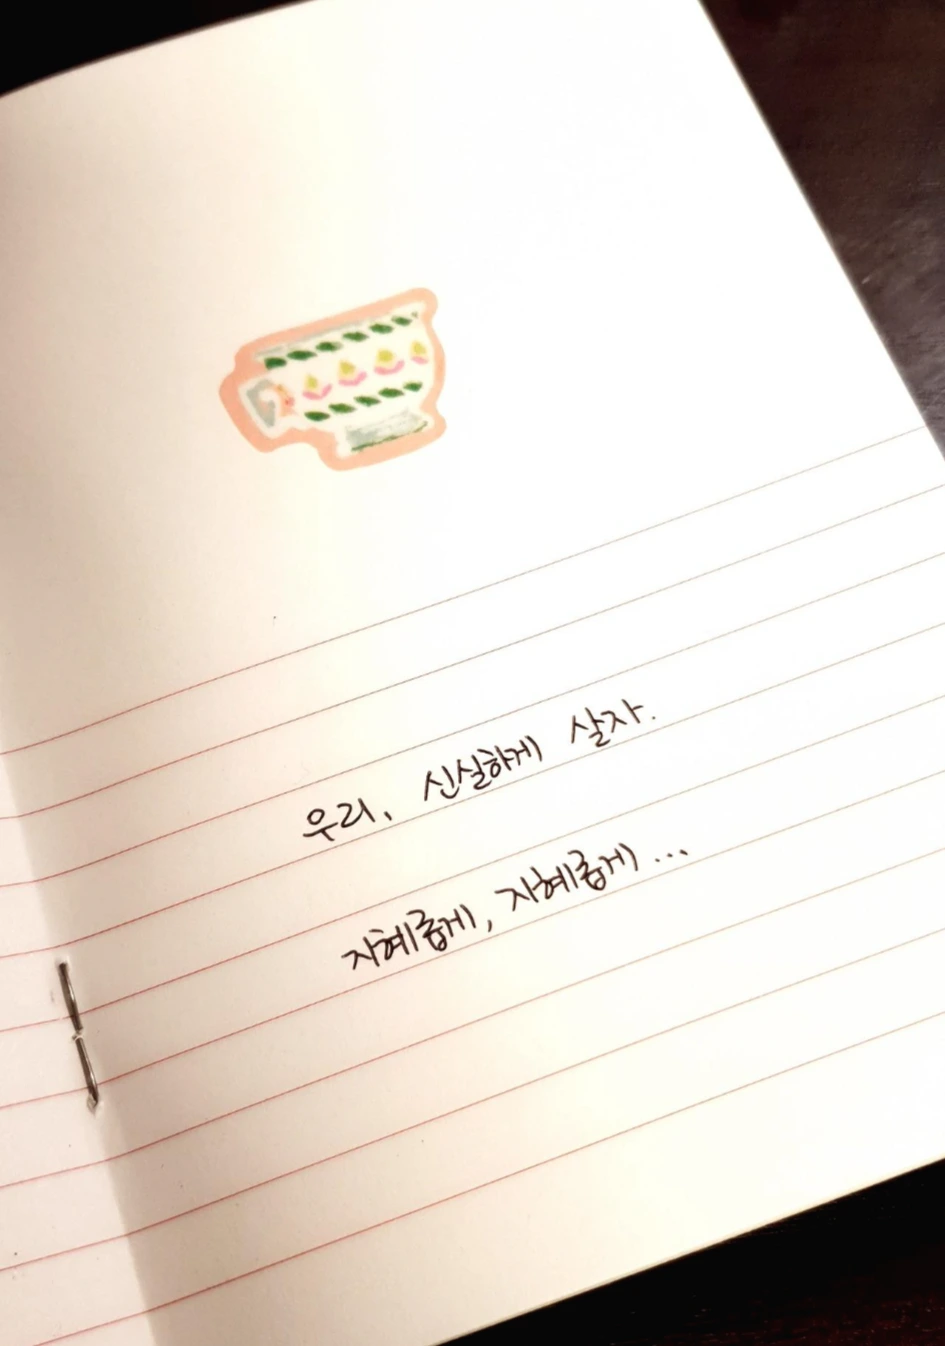 우리, 신실하게 살자.
지혜롭게, 지혜롭게...